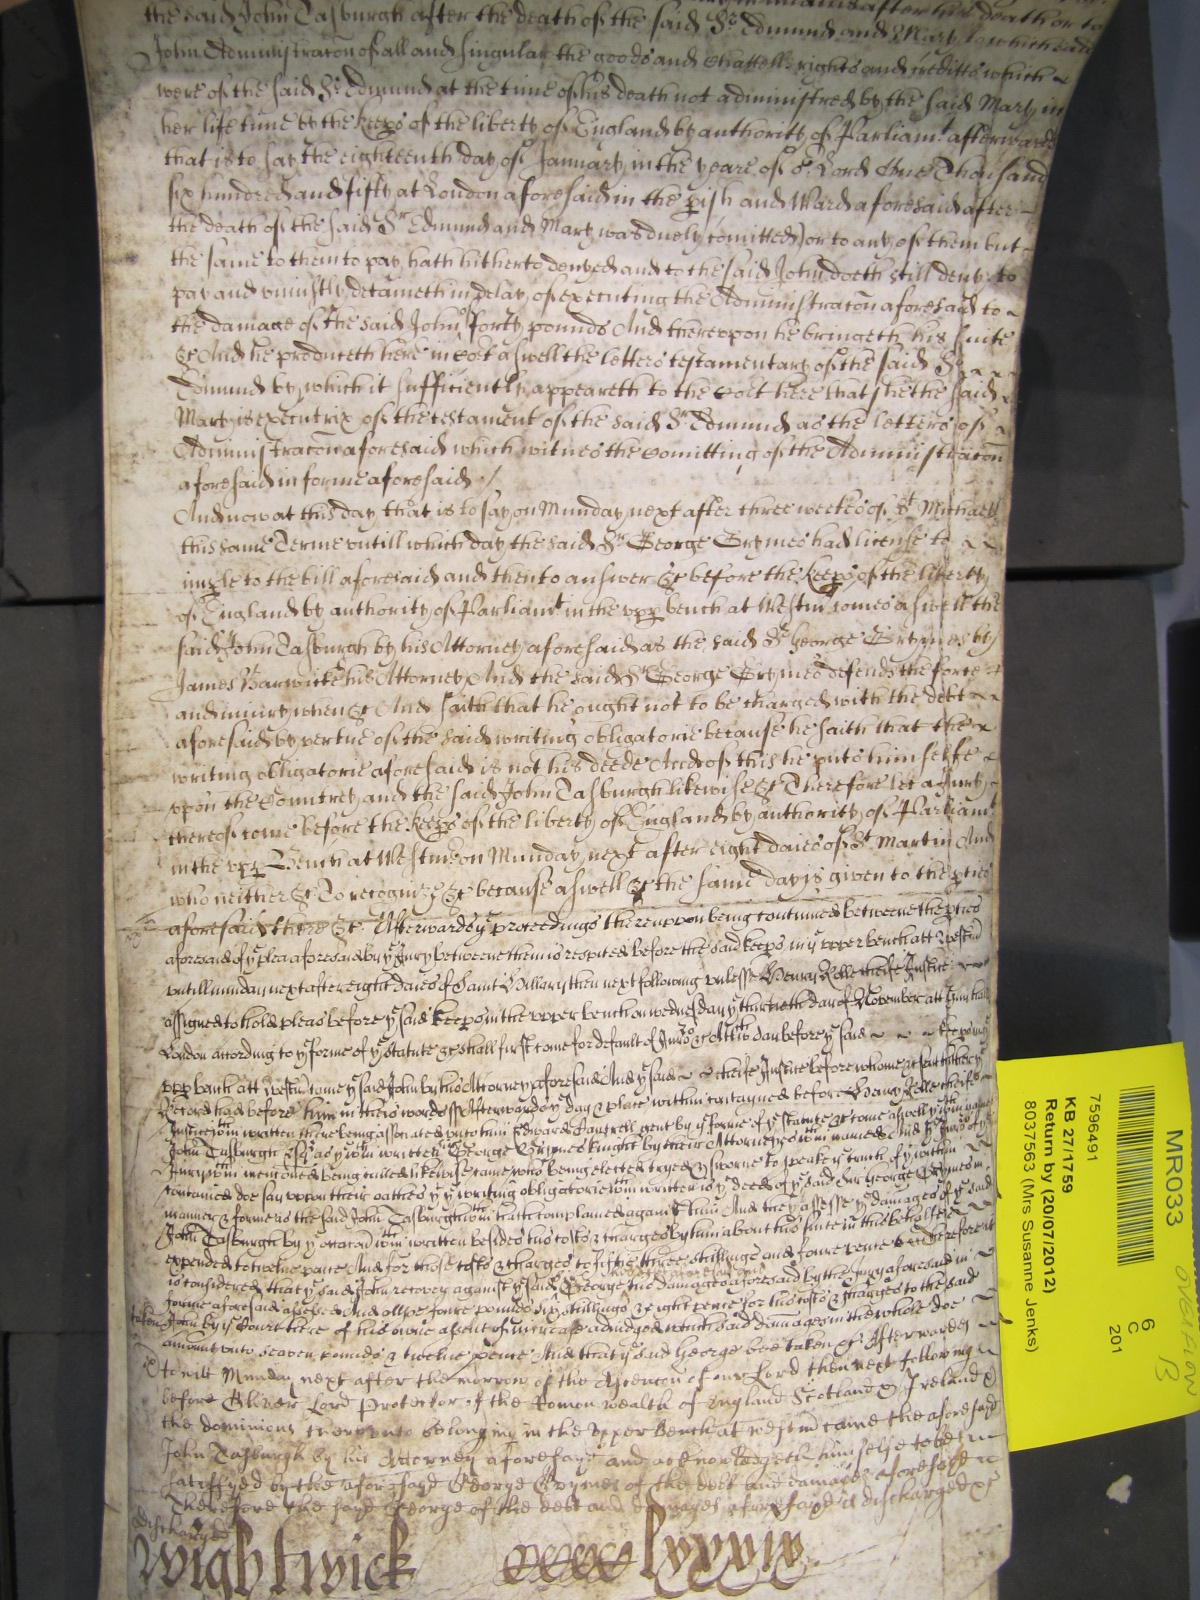 the said John Tasburgh after the death of the said Sr Edmund and Mary to which said
John Administracon of all and singular the goods and Chattells rights and creditts which
were of the said Sr Edmund at the time of his death not administred by the said Mary in
her life time by the keeps of the liberty of England by authority of Parliamt afterwards
that is to say the eighteenth day of January in the yeare of or Lord One Thousand
six hundred and fifty at London aforesaid in the pish and Ward aforesaid after
the death of the said Sr Edmund and Mary was duely comitted) or to any of them but
the same to them to pay hath hitherto denyed and to the said John doeth still deny to
pay and uniustly deteineth in delay of executing the Administracon aforesaid to
the damage of the said John forty pounds And thereupon he bringeth his suite
&c And he produceth here in Cort aswell the letters testamentary of the said Sr
Edmund by which it sufficiently appeareth to the Cort here that she the said
Mary is executrix of the testament of the said Sr Edmund as the letters of
Administracon aforesaid which witnes the Comitting of the Administracon
aforesaid in forme aforesaid /
And now at this day that is to say on Munday next after three weekes of St Michaell
this same Terme untill which day the said Sr George Grymes had license to
imple to the bill aforesaid and then to answer &c before the keeps of the liberty
of England by authority of Parliamt in the upp bench at Westm comes aswell the
said John Tasburgh by his Attorney aforesaid as the said Sr George Grymes by
James Barwicke his Attorney And the said Sr George Grymes defends the force
and iniury when &c And saith that he ought not to be charged with the debt
aforesaid by vertue of the said writing obligatorie because he saith that the
writing obligatorie aforesaid is not his deede And of this he puts himselfe
upon the Countrey and the said John Tasburgh likewise &c Therefore let a Jury
thereof come before the keeps of the liberty of England by authority of Parliamt
in the upp Bench at Westm on Munday next after eight daies of St Martin And
who neither &c To recognize &c because aswell &c the same day is given to the pties
aforesaid there &c Afterwards ye proceedings thereuppon being continued betweene the pties
aforesaid of ye plea aforesaid by ye Jury betweene them is respited before the said keeps in ye upper bench att Westm
untill munday next after eight daies of Saint Hillary then next following unlesse Henry Rolle cheife Justice
assigned to hold pleas before ye said keeps in the upper bench on wednesday ye thirtieth day of November att Guildhall
London according to ye forme of ye Statute &c shall first come for default of Jurors &c Att wch day before ye said keeps in ye
upp bench att Westm come ye said John by his Attorney aforesaid And ye said cheife Justice before whome &c sent hither ye
Record had before him in theis words ss Afterwards ye day & place within contayned before Henry Rolle cheife
Justice wthin written there being associated unto him Edward Cantrell gent by ye forme of ye Statute &c come aswell ye wthin named
John Tasburgh Esq as ye wthin written George Grymes knight by their Attorneyes wthin named And ye Jurors of ye
Jury wthin mencioned being called likewise came who being elected tryed & sworne to speake ye truth of ye wthin
contained doe say uppon their oathes yt ye writing obligatorie wthin written is ye deede of ye said Sir George Grymes in
manner & forme as the said John Tasburgh wthin hath complained against him And they assesse ye damages of ye said
John Tasburgh by ye occacon wthin written besides his costs & charges by him about his suite in this behalfe
expended to twelve pence And for those costs & charges to fiftie three shillings and foure pence Therefore it
is considered that ye said John recover against ye said George his damages aforesaid by the Jury aforesaid in
forme aforesaid assessed And allsoe foure pounds six shillings & eight pence for his costs & charges to the said
John by ye Court here of his owne assent of increase adiudged which said damages in the whole doe
amount unto seaven pounds & twelve pence And that ye said George bee taken &c Afterwards
to witt Munday next after the morrow of the Ascencon of our Lord then next following
before Oliver Lord Protector of the Comon wealth of England Scotland & Ireland &
the dominions thereunto belonging in the Upper Bench at westm came the aforesayd
John Tasburgh by his Attorney aforesayd and acknowledgeth himselfe to be
satisfyed by the aforesayd George Grymes of the debt and damages aforesayd
Therefore the sayd George of the debt and damages aforesayd is discharged &c
discharged
Wightwick xxxx lxxxiv
MR033
7596491
KB 27/1759
Return by (20/07/2012)
8037563 (Mrs Susanne Jenks)
6
C
201
OVERFLOW